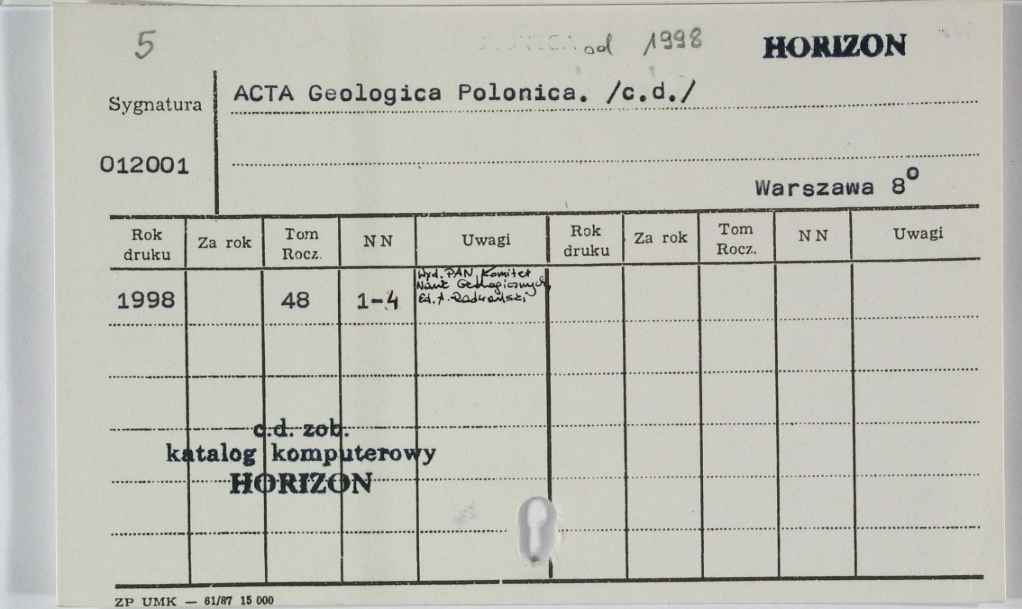 5
od 1998 HORIZON
Sygnatura
ACTA Geologica Polonica. /c.d./
012001
Warszawa 8°
Rok druku Za rok Tom Rocz. NN Uwagi Rok druku Za rok Tom Rocz. NN Uwagi
1998 48 1-4 Wyd. PAN, Komitet
Nauk Geologicznych,
Ed. A. Radwański
c.d. zob.
katalog komputerowy
HORIZON
ZP UMK — 61/87 15 000